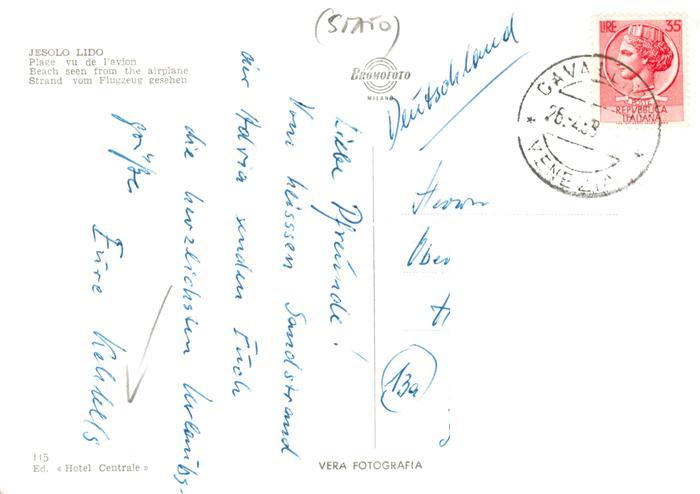 (STATO)
JESOLO LIDO
Plage vu de l'avion
Beach seen from the airplane
Strand vom Flugzeug gesehen
BROMOFOTO
MILANO
Deutschland
LIRE 35
POSTE
REPVBBLICA
ITALIANA
CAVALLINO
VENEZIA
Liebe Pfreunde!
Vom heissen Sandstrand
der Adria senden Euch
die herzlichsten Urlaubs-
grüße
Eure
Herrn
Ober
H
13a
115
Ed. « Hotel Centrale »
VERA FOTOGRAFIA